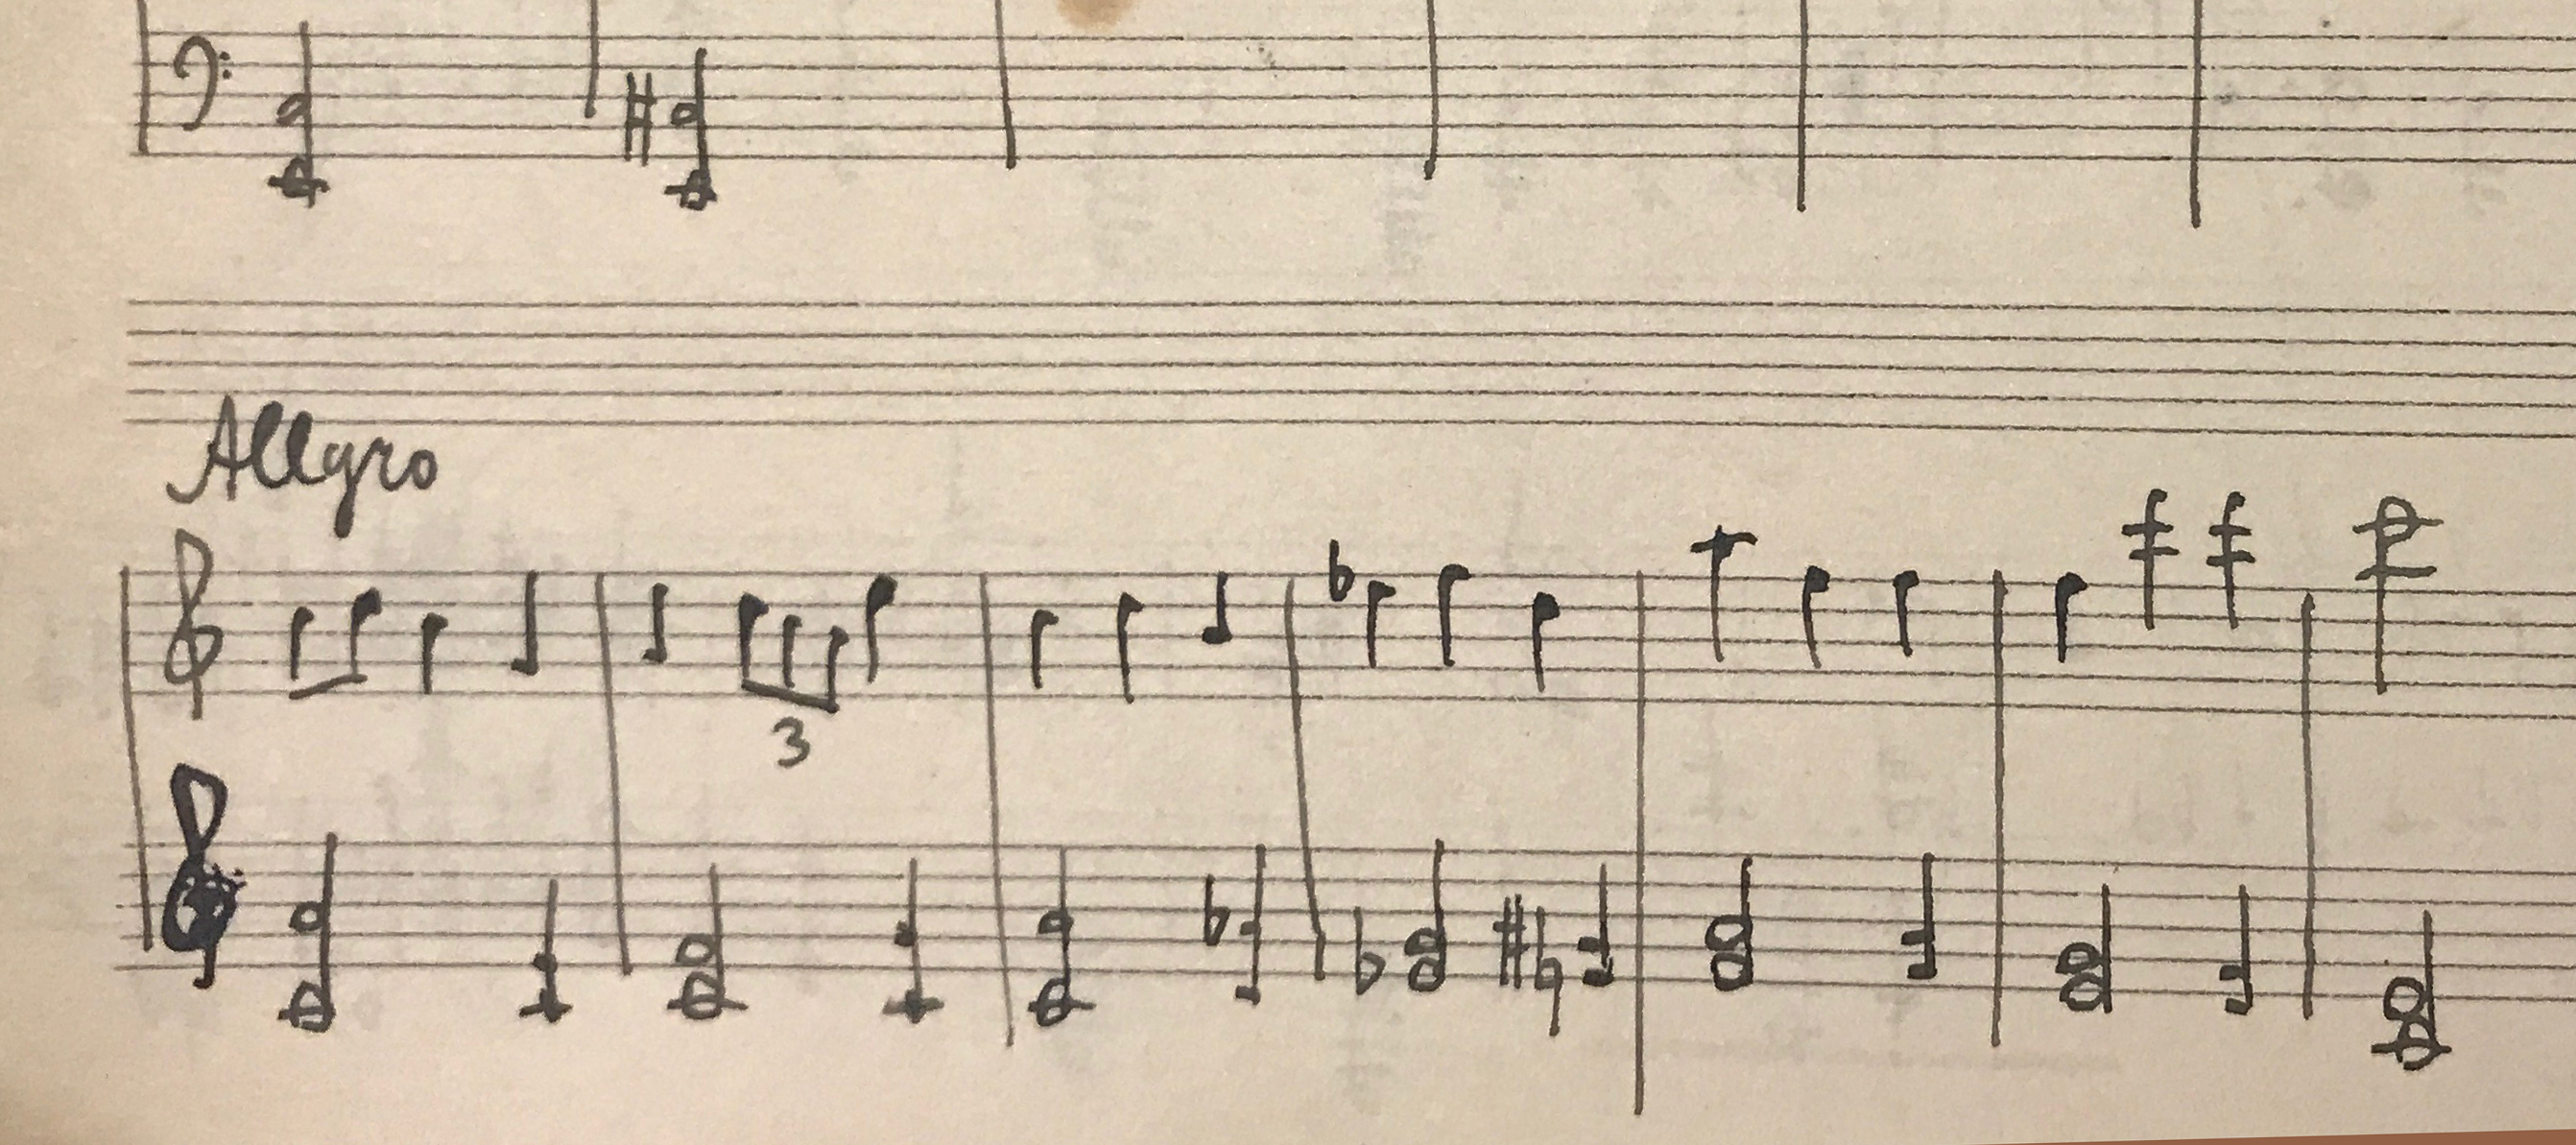 Allgro
3